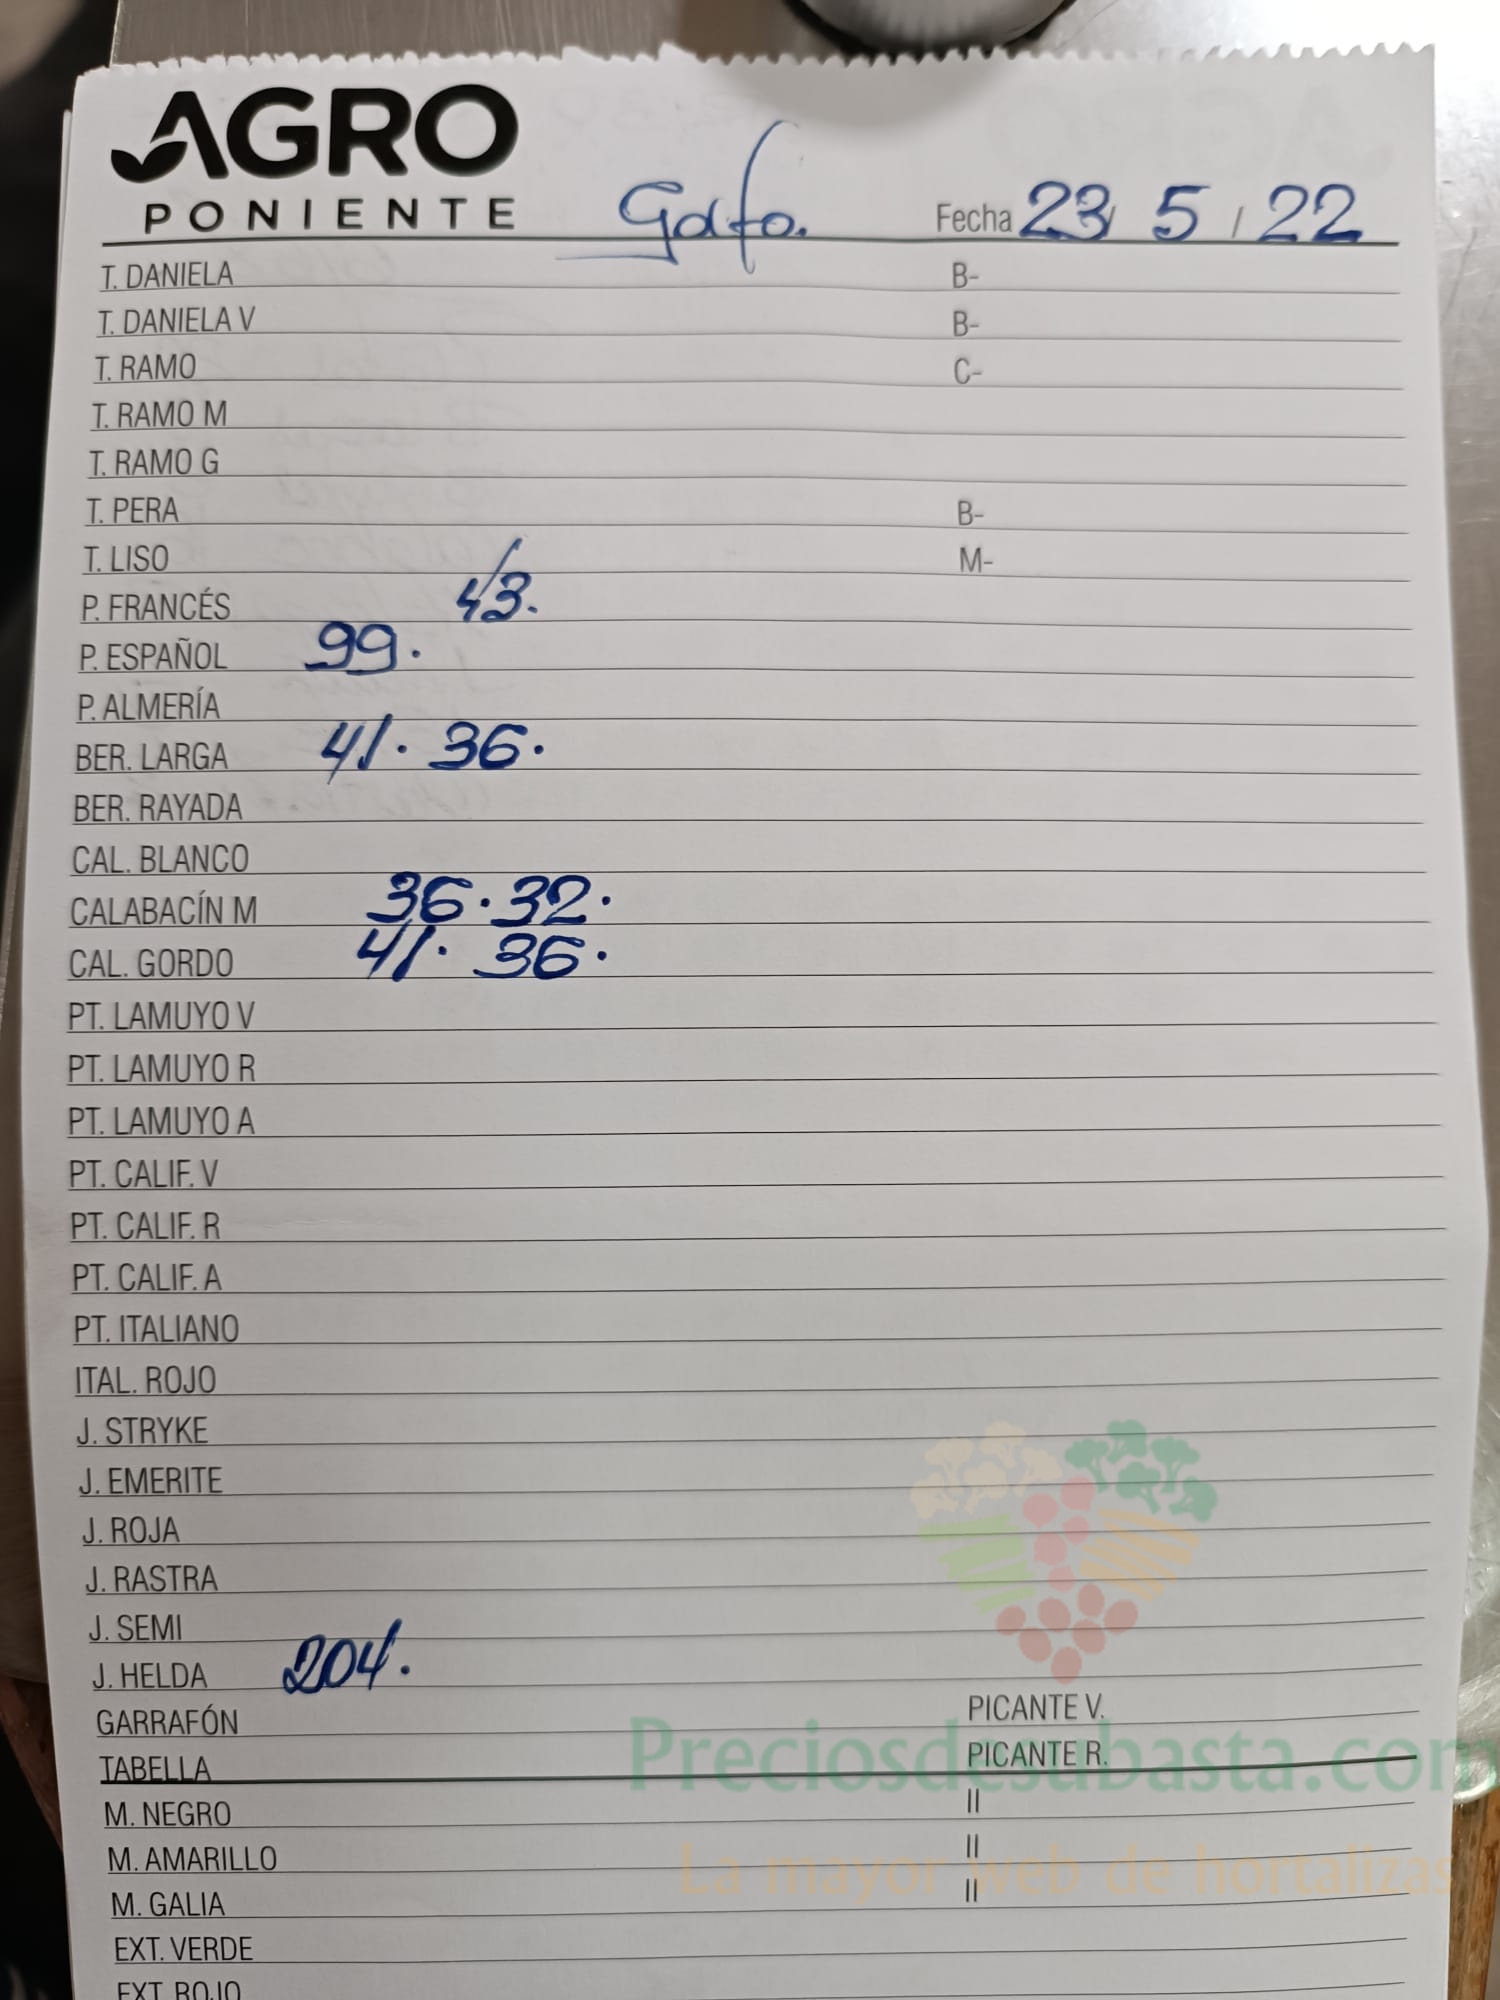 AGRO
PONIENTE Gdfo. Fecha 23/ 5 / 22
T. DANIELA B-
T. DANIELA V B-
T. RAMO C-
T. RAMO M
T. RAMO G
T. PERA B-
T. LISO M-
P. FRANCÉS 43.
P. ESPAÑOL 99.
P. ALMERÍA
BER. LARGA 41. 36.
BER. RAYADA
CAL. BLANCO
CALABACÍN M 36. 32.
CAL. GORDO 41. 36.
PT. LAMUYO V
PT. LAMUYO R
PT. LAMUYO A
PT. CALIF. V
PT. CALIF. R
PT. CALIF. A
PT. ITALIANO
ITAL. ROJO
J. STRYKE
J. EMERITE
J. ROJA
J. RASTRA
J. SEMI
J. HELDA 204.
GARRAFÓN PICANTE V.
TABELLA PICANTE R.
Preciosdesubasta.com
M. NEGRO II
M. AMARILLO II
La mayor web de hortalizas
M. GALIA II
EXT. VERDE
EXT. ROJO